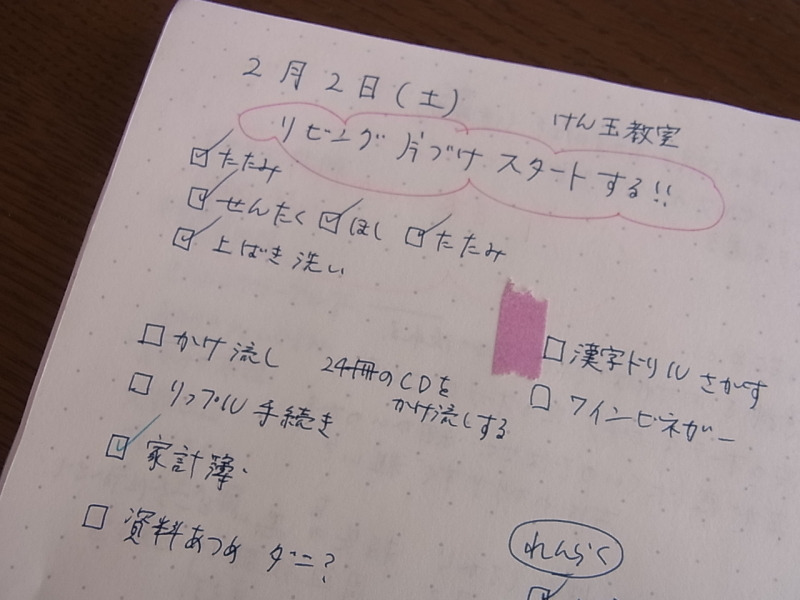 2月2日(土)
けん玉教室
リビング片づけスタートする!!
☑たたみ
☑せんたく ☑ほし ☑たたみ
☑上ばき洗い
□かけ流し 24冊のCDを
かけ流しする
□リップル手続き
☑家計簿
□資料あつめ ダニ?
□漢字ドリルさがす
□ワインビネガー
れんらく